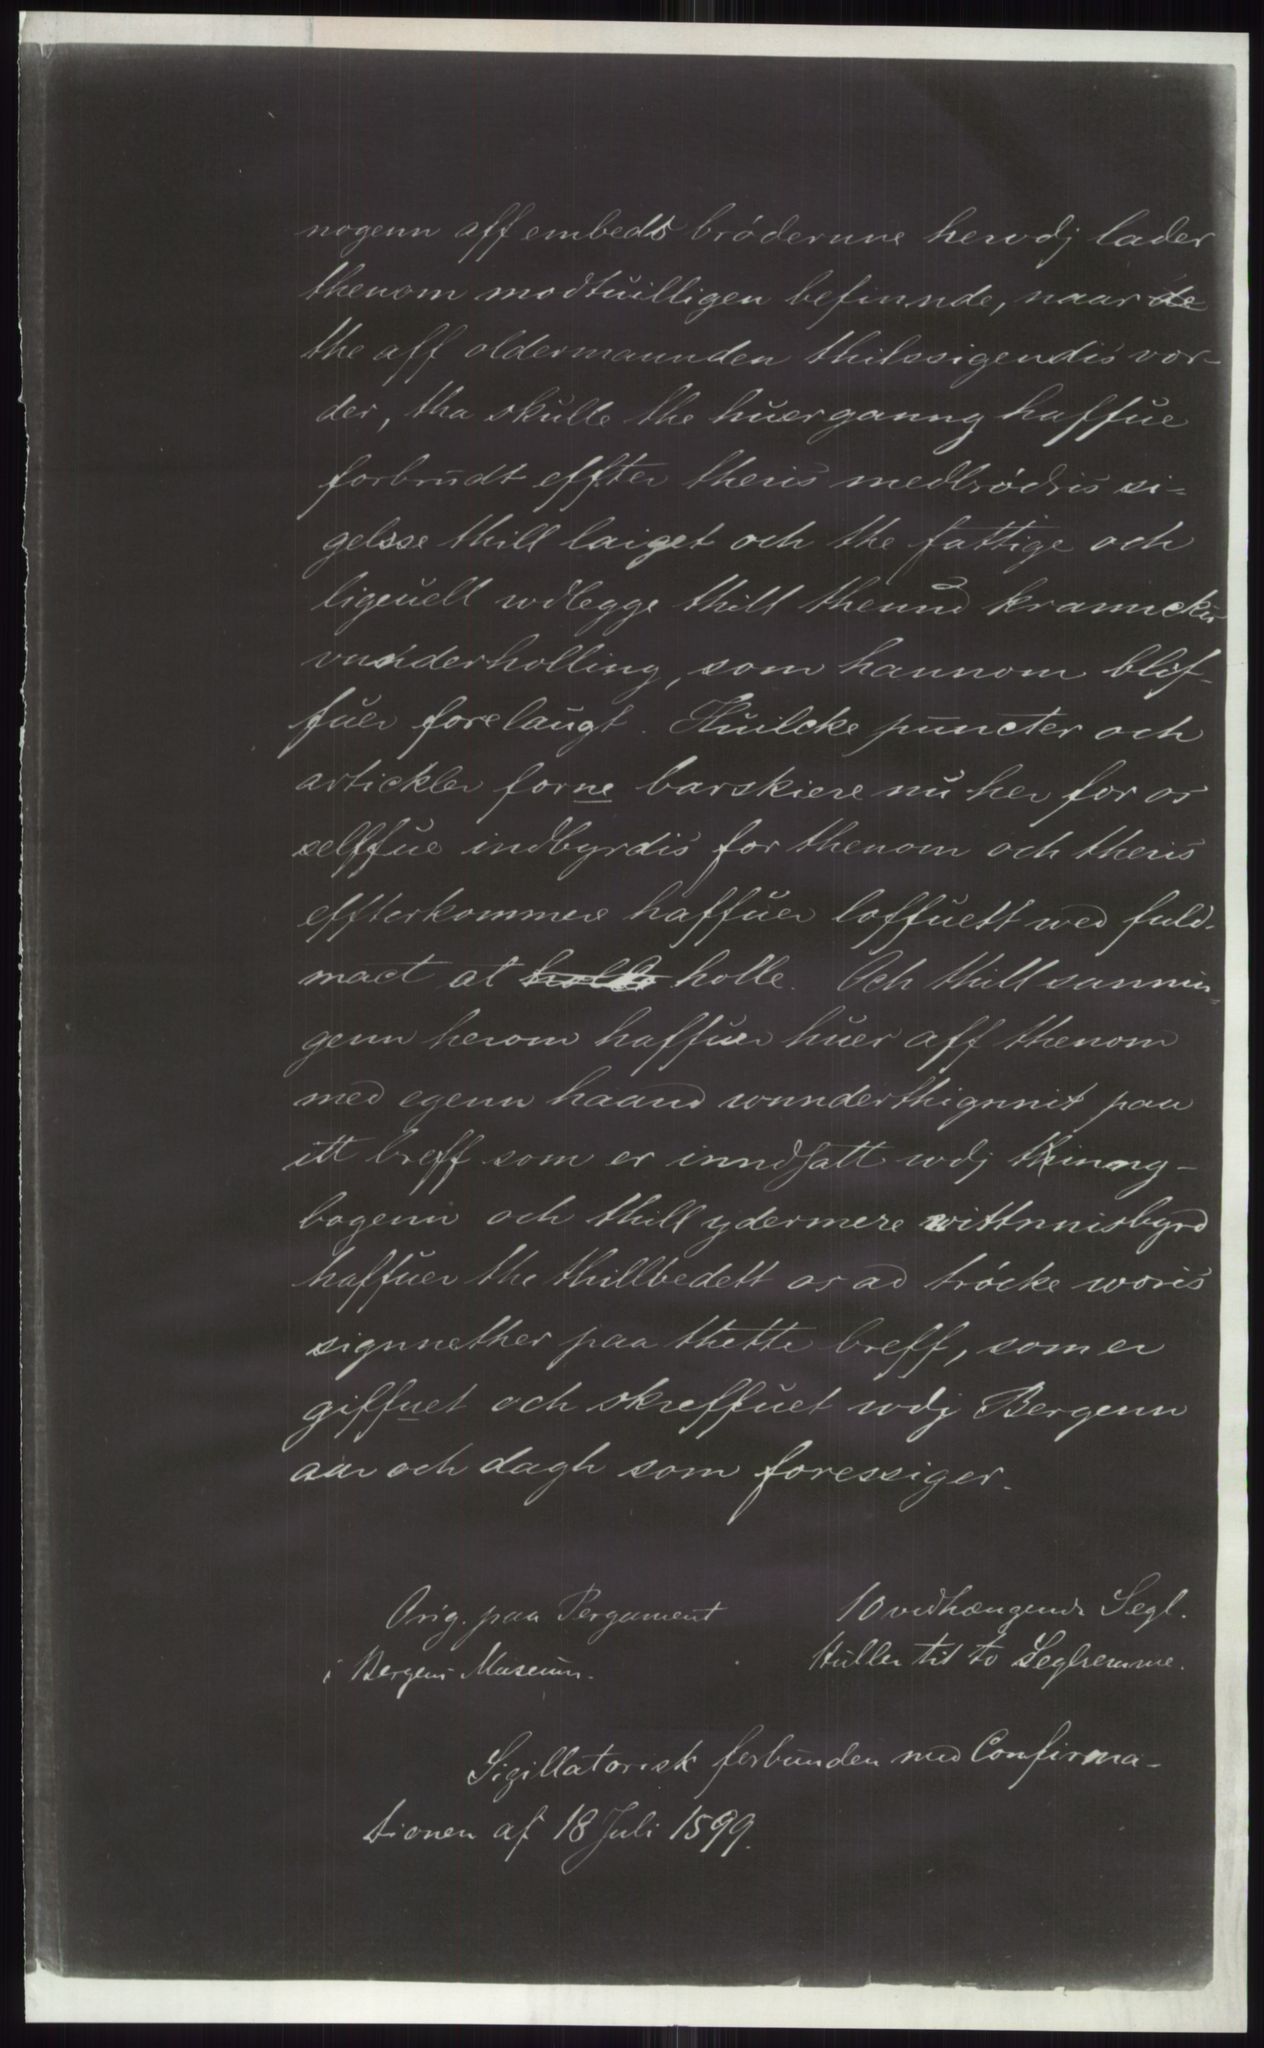 nogenn aff embedts brødernne herwdj lader
thenom modtuilligen befinnde, naar de
the aff oldermannden thilssigendis vor-
der, tha skulle the huer ganng haffue
forbrudt effter theris medbrødris si-
gelsse thill laiget och the fattige och
ligeuell wdlegge thill thennd krannckis
vunderholling, som hannom blif-
fuer forelaugt. Huilcke puncter och
artickler forne barskiere nu her for os
selffue indbyrdis for thenom och theris
effterkommere haffuer loffuett wed fuld-
mact at holle holle. Och thill sannin-
genn herom haffuer huer aff thenom
med egenn haand wnnderthignnit paa
itt breff som er inndsatt wdj thinng-
bogenn och thill ydermere wittnnisbyrd
haffuer the thillbedett os ad trøcke woris
signnether paa thette breff, som er
giffuet och skreffuet wdj Bergenn
aar och dagh som foressiger.
Orig. paa Pergament
i Bergens Museum.
10 vedhængende Segl.
Huller til to Seglremme.
Sigillatorisk forbunden med Confirma-
tionen af 18 Juli 1599.